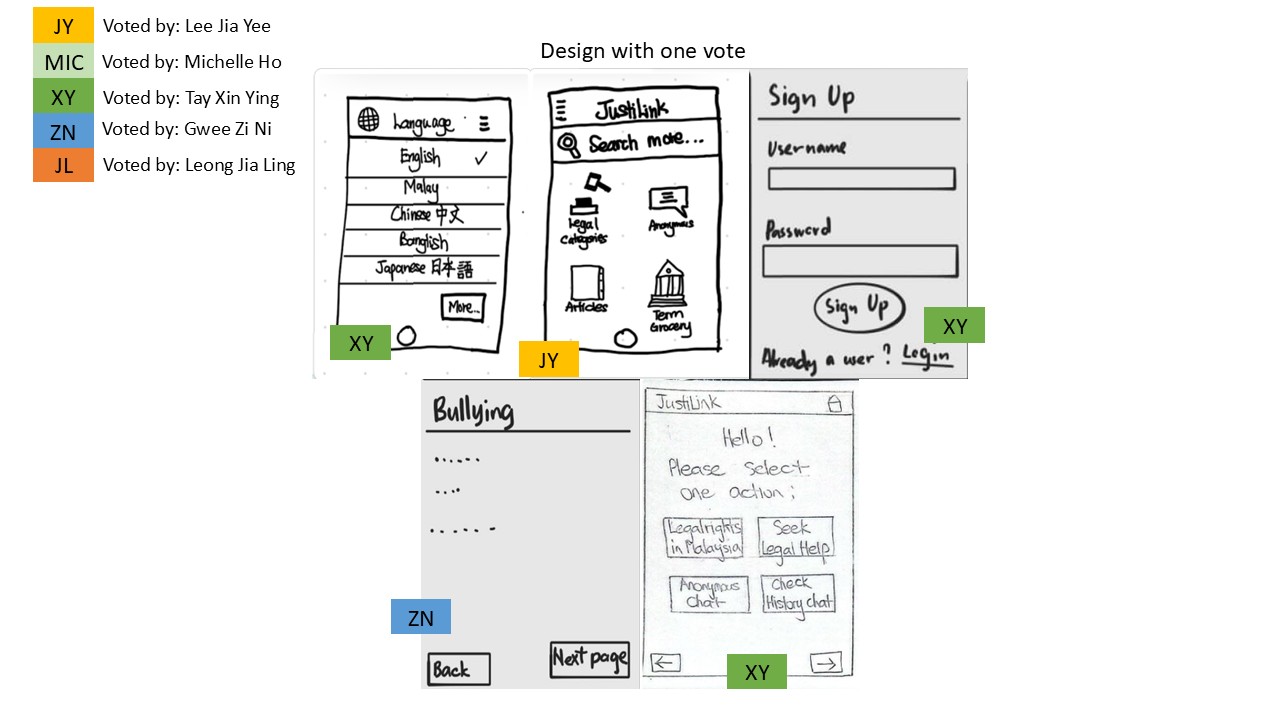 JY Voted by: Lee Jia Yee
MIC Voted by: Michelle Ho
XY Voted by: Tay Xin Ying
ZN Voted by: Gwee Zi Ni
JL Voted by: Leong Jia Ling
Design with one vote
Language
English ✓
Malay
Chinese 中文
Banglish
Japanese 日本語
More...
XY
JustiLink
Search more...
Legal
Categories
Anonymous
Articles
Term
Grocery
JY
Sign Up
Username
Password
Sign Up
XY
Already a user? Login
Bullying
ZN
Back
Next page
JustiLink
Hello!
Please select
one action;
Legal rights
in Malaysia
Seek
Legal Help
Anonymous
Chat
Check
History chat
XY